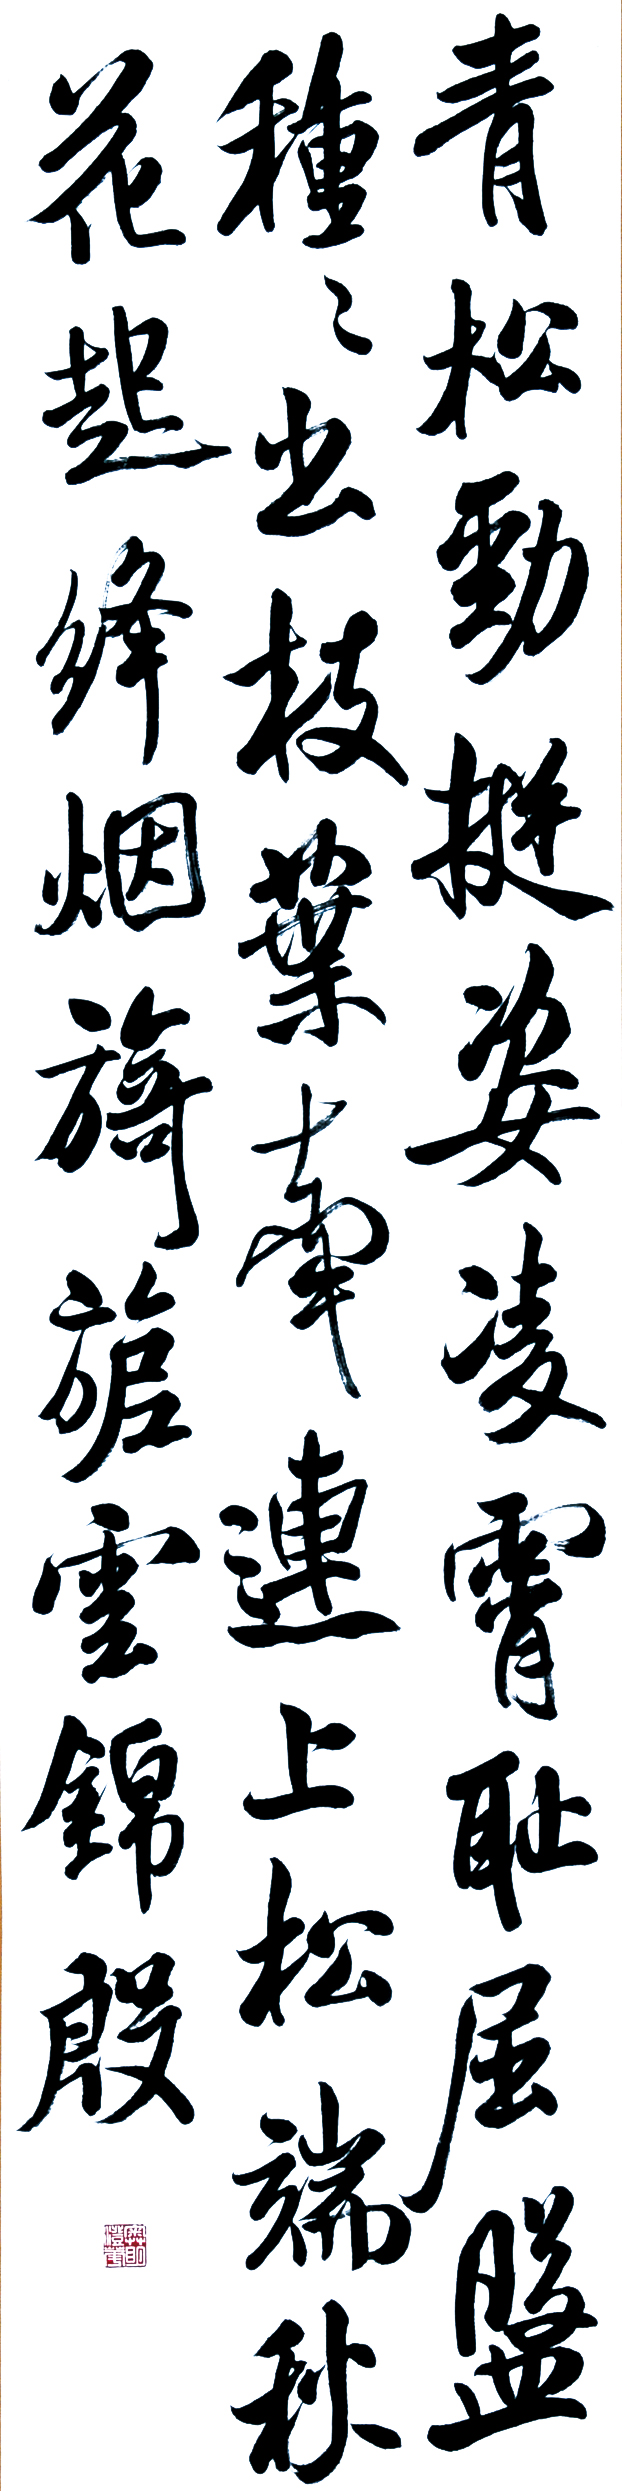 青松勁挺姿凌霄耻屈盤
種〻出枝葉牽連上松端秋
花起絳烟旖旎雲錦殷